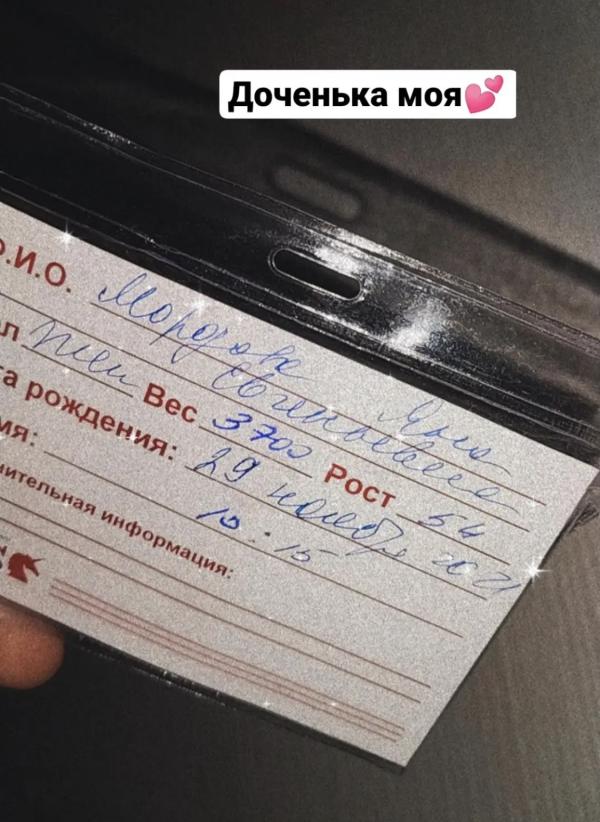 Доченька моя💕
Ф.И.О. Морозова Яна
Евгеньевна
ол жен Вес 3700 Рост 54
та рождения: 29 ноября 2021
мя: 10:15
нительная информация: